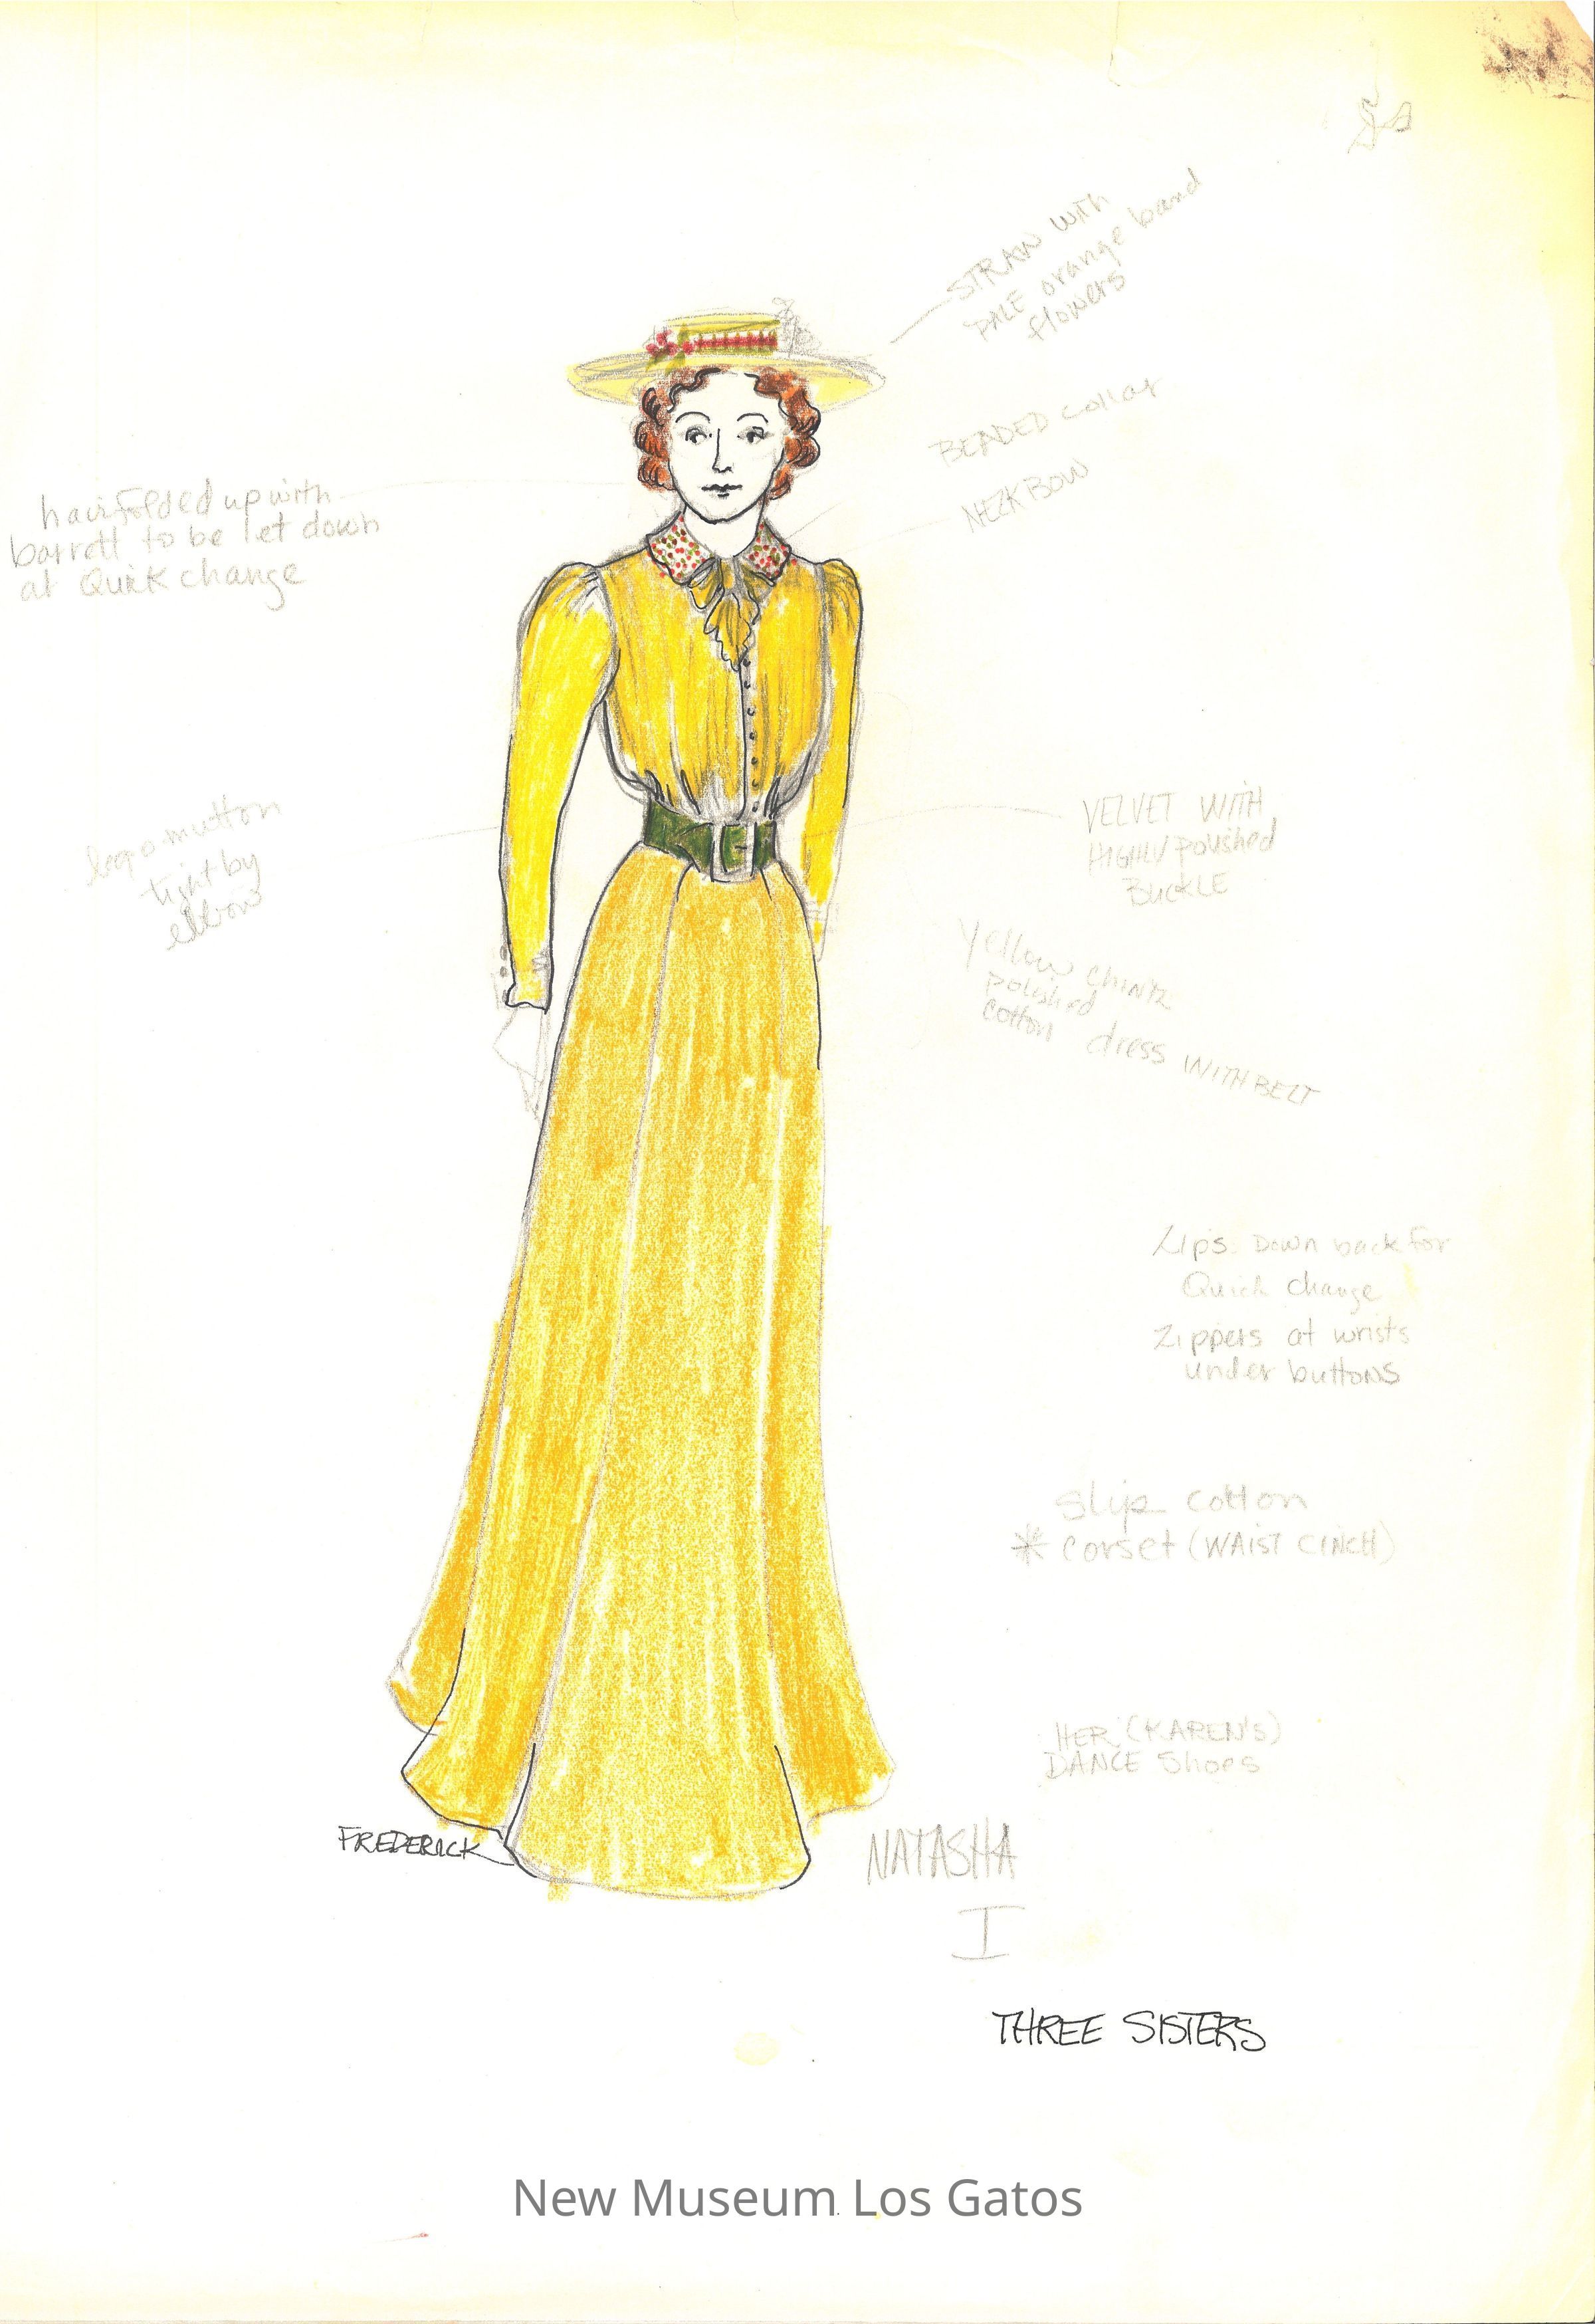 STRAW WITH
PALE orange band
flowers
BEADED collar
NEZK BOW
hair folded up with
barrett to be let down
at Quick change
leg o mutton
tight by
elbow
VELVET WITH
HIGHLY polished
BUCKLE
Yellow CHINTZ
polished
cotton dress WITH BELT
Zips Down back for
Quick change
Zippers at wrists
under buttons
slip cotton
* corset (WAIST CINCH)
HER (KAREN'S)
DANCE Shoes
FREDERICK
NATASHA
I
THREE SISTERS
New Museum Los Gatos